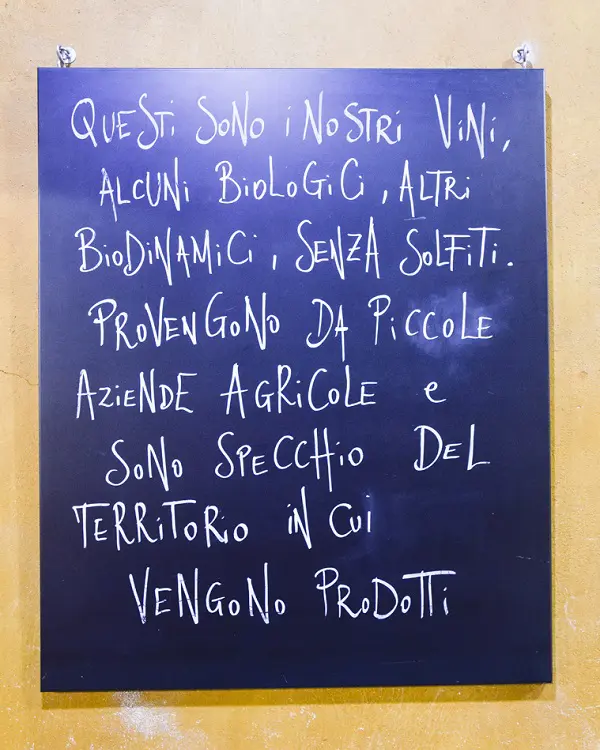 QUESTi SONO i NOSTRi ViNi,
ALCUNi BiOLOGiCi, ALTRi
BiODiNAMiCi, SENZA SOLFiTi.
PROVENGONO DA PiCCOLE
AZiENDE AGRiCOLE e
SONO SPECCHiO DEL
TERRiTORiO iN CUi
VENGONO PRODOTTi